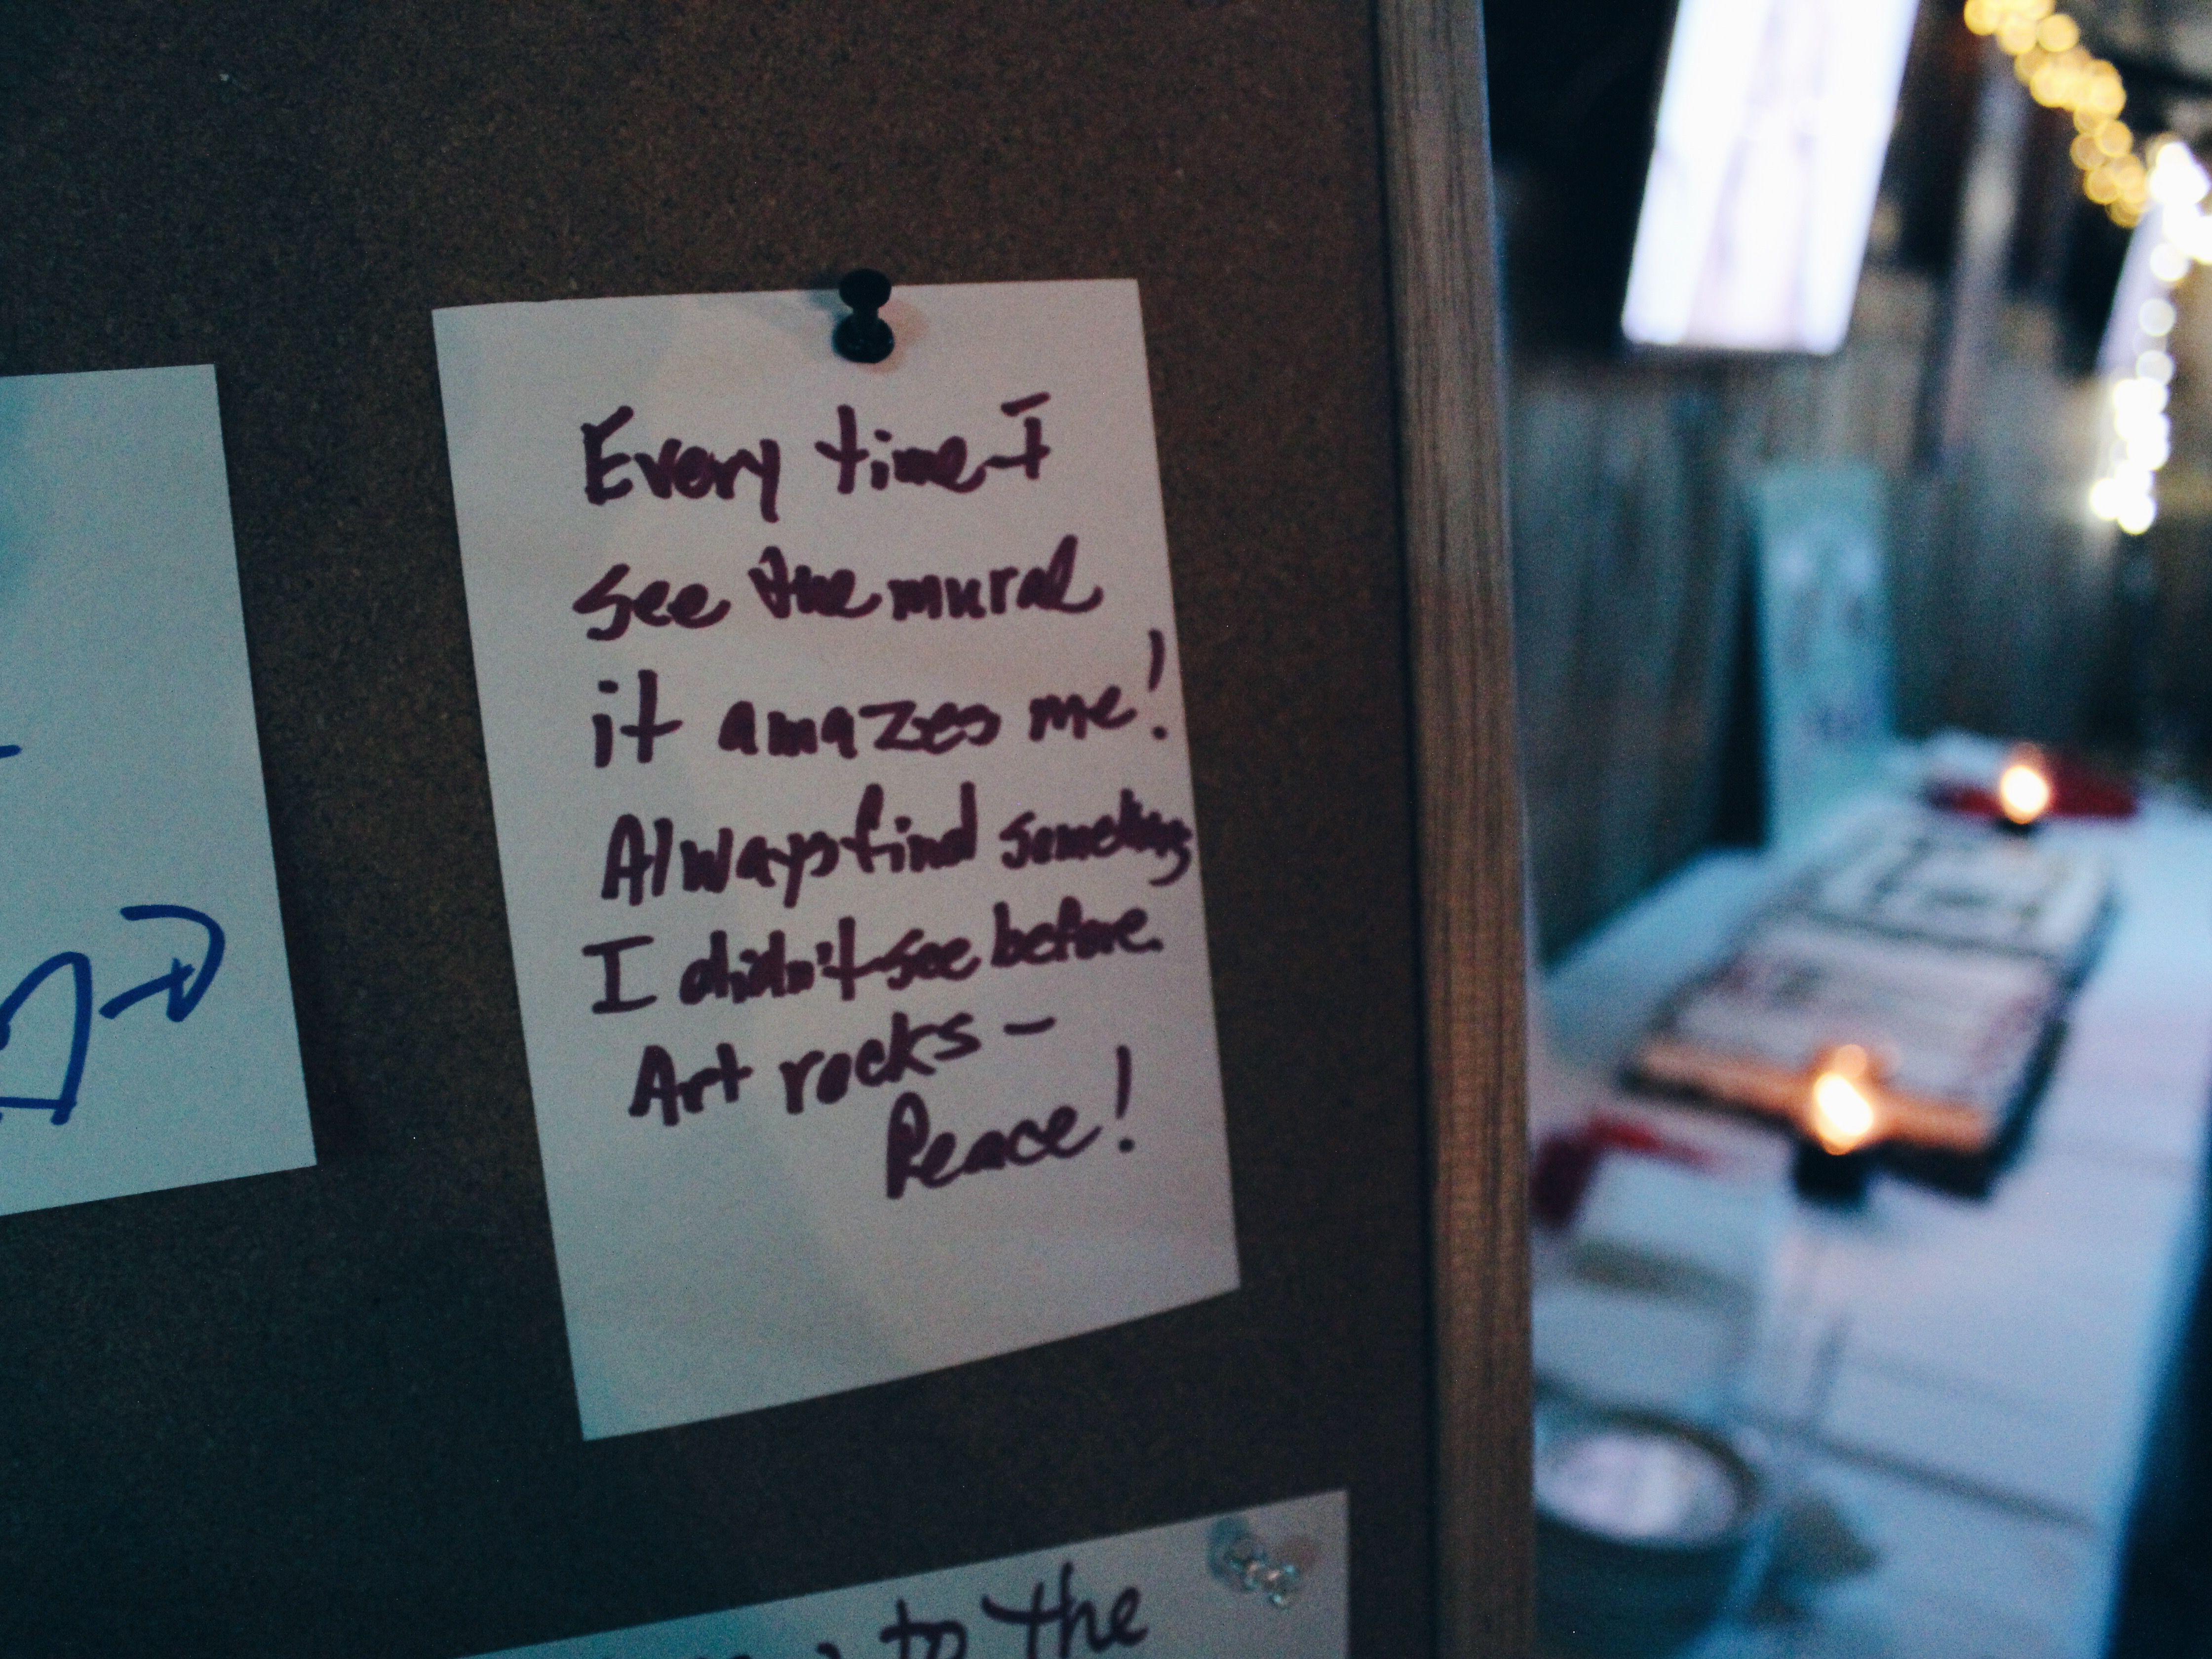 Every time I
see the mural
it amazes me!
Always find something
I didn't see before.
Art rocks –
Peace!
to the